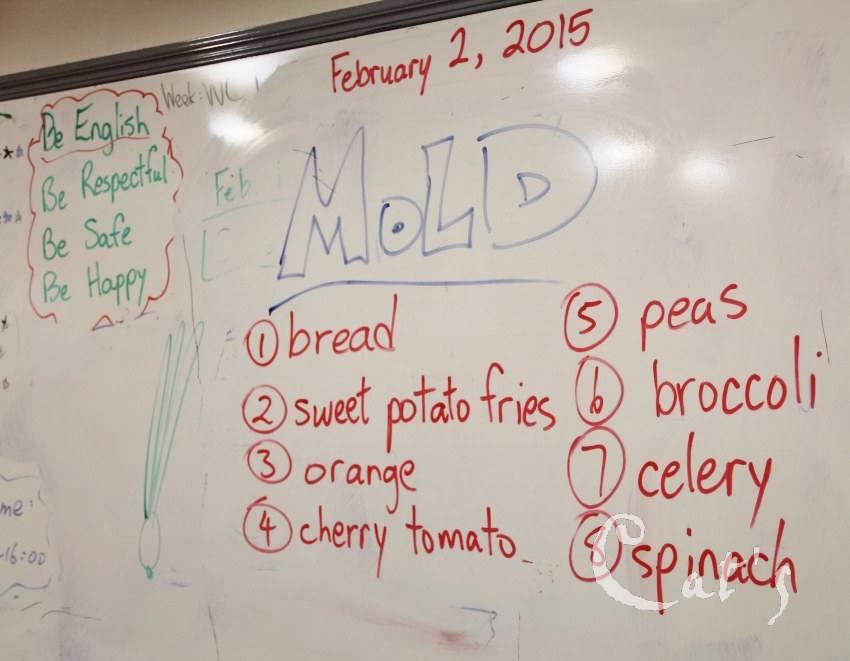 February 2, 2015
Week: WC
Be English
Be Respectful
Be Safe
Be Happy
Feb
MOLD
① bread
② sweet potato fries
③ orange
④ cherry tomato
⑤ peas
⑥ broccoli
⑦ celery
⑧ spinach
me:
-16:00
Cat's